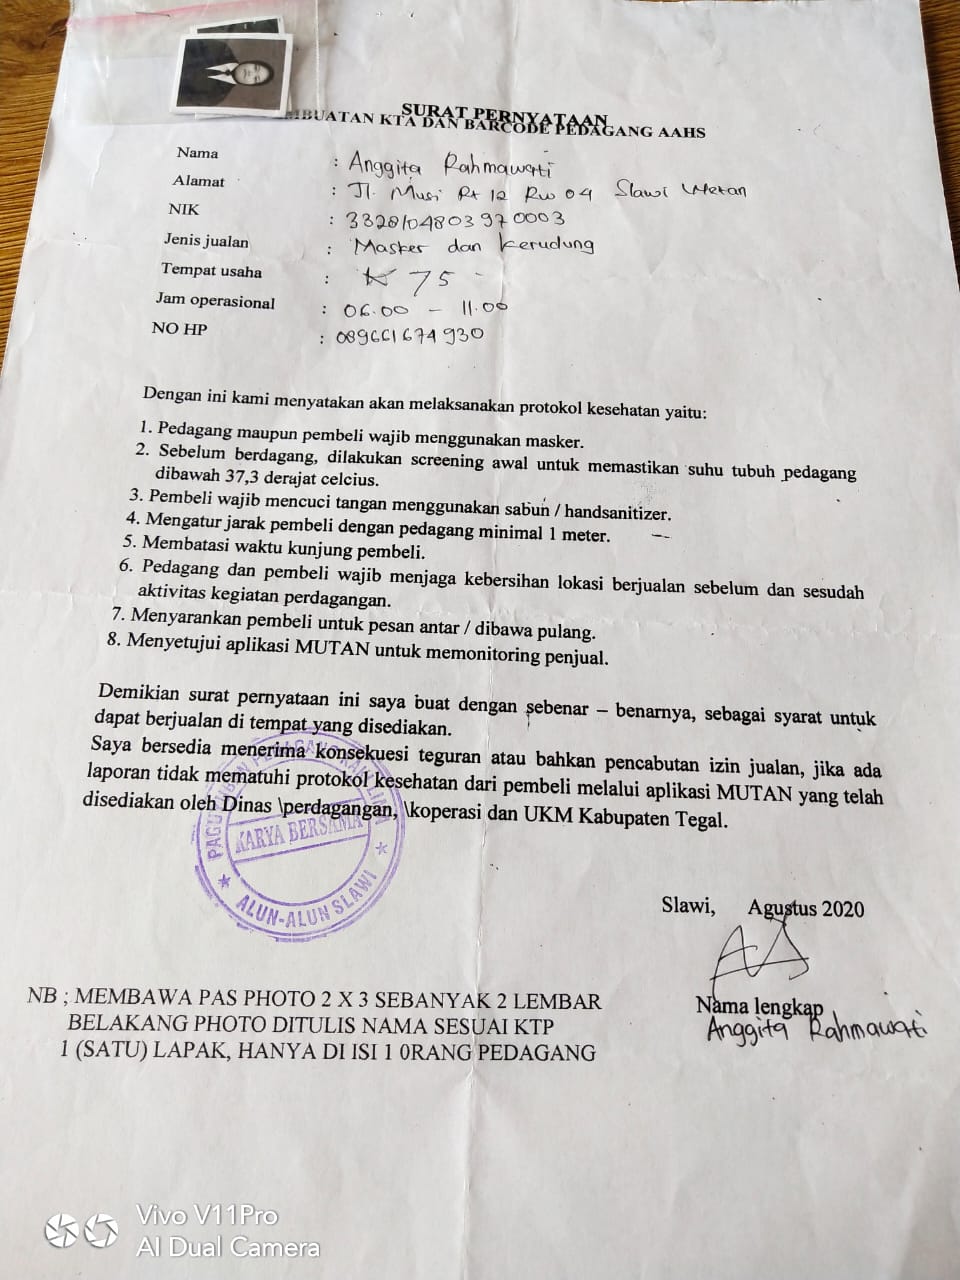 SURAT PERNYATAAN
MBUATAN KTA DAN BARCODE PEDAGANG AAHS
Nama : Anggita Rahmawati
Alamat : Jl. Musi Rt 12 Rw 04 Slawi Wetan
NIK : 3328104803970003
Jenis jualan : Masker dan kerudung
Tempat usaha : 75
Jam operasional : 06.00 - 11.00
NO HP : 089661674930
Dengan ini kami menyatakan akan melaksanakan protokol kesehatan yaitu:
1. Pedagang maupun pembeli wajib menggunakan masker.
2. Sebelum berdagang, dilakukan screening awal untuk memastikan suhu tubuh pedagang
dibawah 37,3 derajat celcius.
3. Pembeli wajib mencuci tangan menggunakan sabun / handsanitizer.
4. Mengatur jarak pembeli dengan pedagang minimal 1 meter.
5. Membatasi waktu kunjung pembeli.
6. Pedagang dan pembeli wajib menjaga kebersihan lokasi berjualan sebelum dan sesudah
aktivitas kegiatan perdagangan.
7. Menyarankan pembeli untuk pesan antar / dibawa pulang.
8. Menyetujui aplikasi MUTAN untuk memonitoring penjual.
Demikian surat pernyataan ini saya buat dengan sebenar – benarnya, sebagai syarat untuk
dapat berjualan di tempat yang disediakan.
Saya bersedia menerima konsekuesi teguran atau bahkan pencabutan izin jualan, jika ada
laporan tidak mematuhi protokol kesehatan dari pembeli melalui aplikasi MUTAN yang telah
disediakan oleh Dinas \perdagangan, \koperasi dan UKM Kabupaten Tegal.
KARYA BERSAMA
ALUN-ALUN SLAWI
Slawi, Agustus 2020
Nama lengkap
Anggita Rahmawati
NB ; MEMBAWA PAS PHOTO 2 X 3 SEBANYAK 2 LEMBAR
BELAKANG PHOTO DITULIS NAMA SESUAI KTP
1 (SATU) LAPAK, HANYA DI ISI 1 0RANG PEDAGANG
Vivo V11Pro
AI Dual Camera